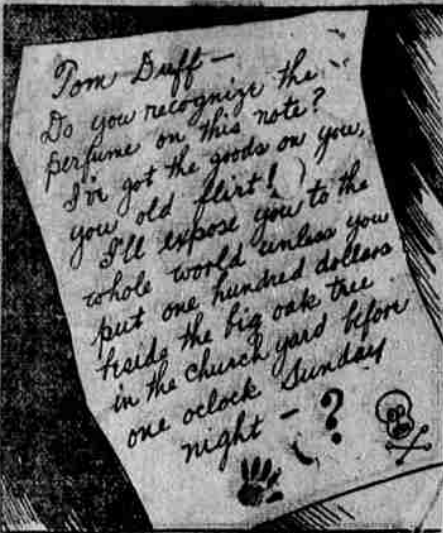 Tom Duff —
Do you recognize the
perfume on this note?
I've got the goods on you,
you old flirt!
I'll expose you to the
whole world unless you
put one hundred dollars
beside the big oak tree
in the church yard before
one oclock Sunday
night — ?